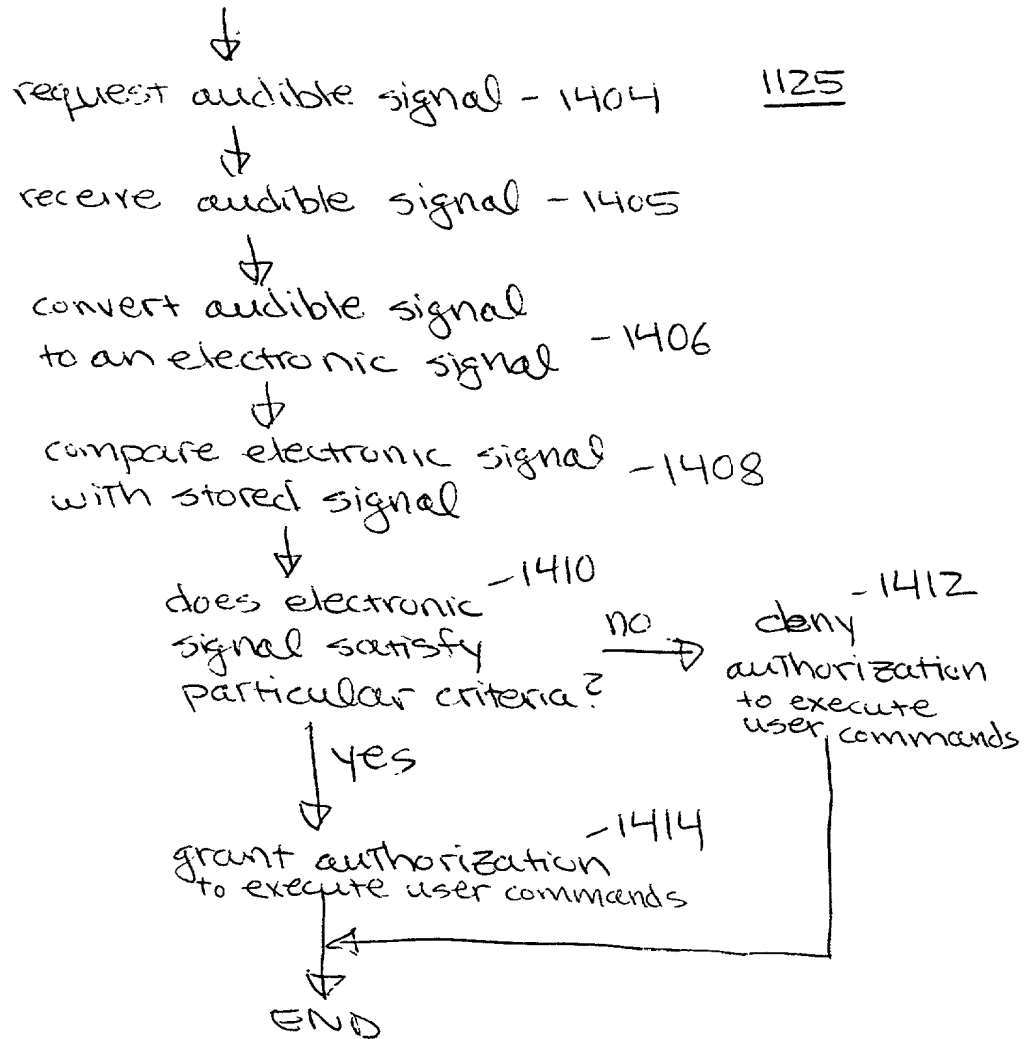 request audible signal - 1404
1125
receive audible signal - 1405
convert audible signal
to an electronic signal - 1406
compare electronic signal - 1408
with stored signal
does electronic - 1410
signal satisfy
particular criteria?
no
deny - 1412
authorization
to execute
user commands
yes
grant authorization - 1414
to execute user commands
END